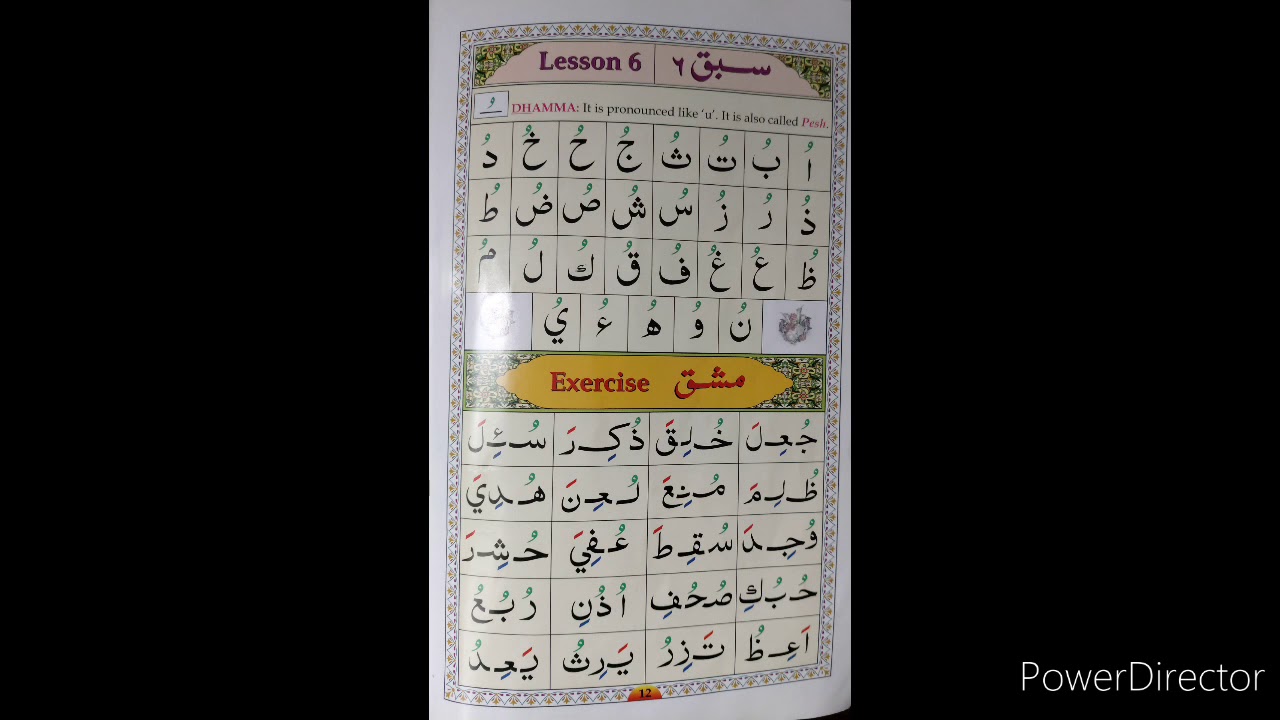 Lesson 6 سبق ٦
ـُ DHAMMA: It is pronounced like ‘u’. It is also called Pesh.
اُ بُ تُ ثُ جُ حُ خُ دُ
ذُ رُ زُ سُ شُ صُ ضُ طُ
ظُ عُ غُ فُ قُ كُ لُ مُ
نُ وُ هُ ءُ يُ
Exercise مشق
جُعِلَ خُلِقَ ذُكِرَ سُئِلَ
ظُلِمَ مُنِعَ لُعِنَ هُدِيَ
وُجِدَ سُقِطَ عُفِيَ حُشِرَ
حُبُكِ صُحُفِ اُذُنِ رُبُعُ
اَعِظُ تَزِرُ يَرِثُ يَعِدُ
12
PowerDirector